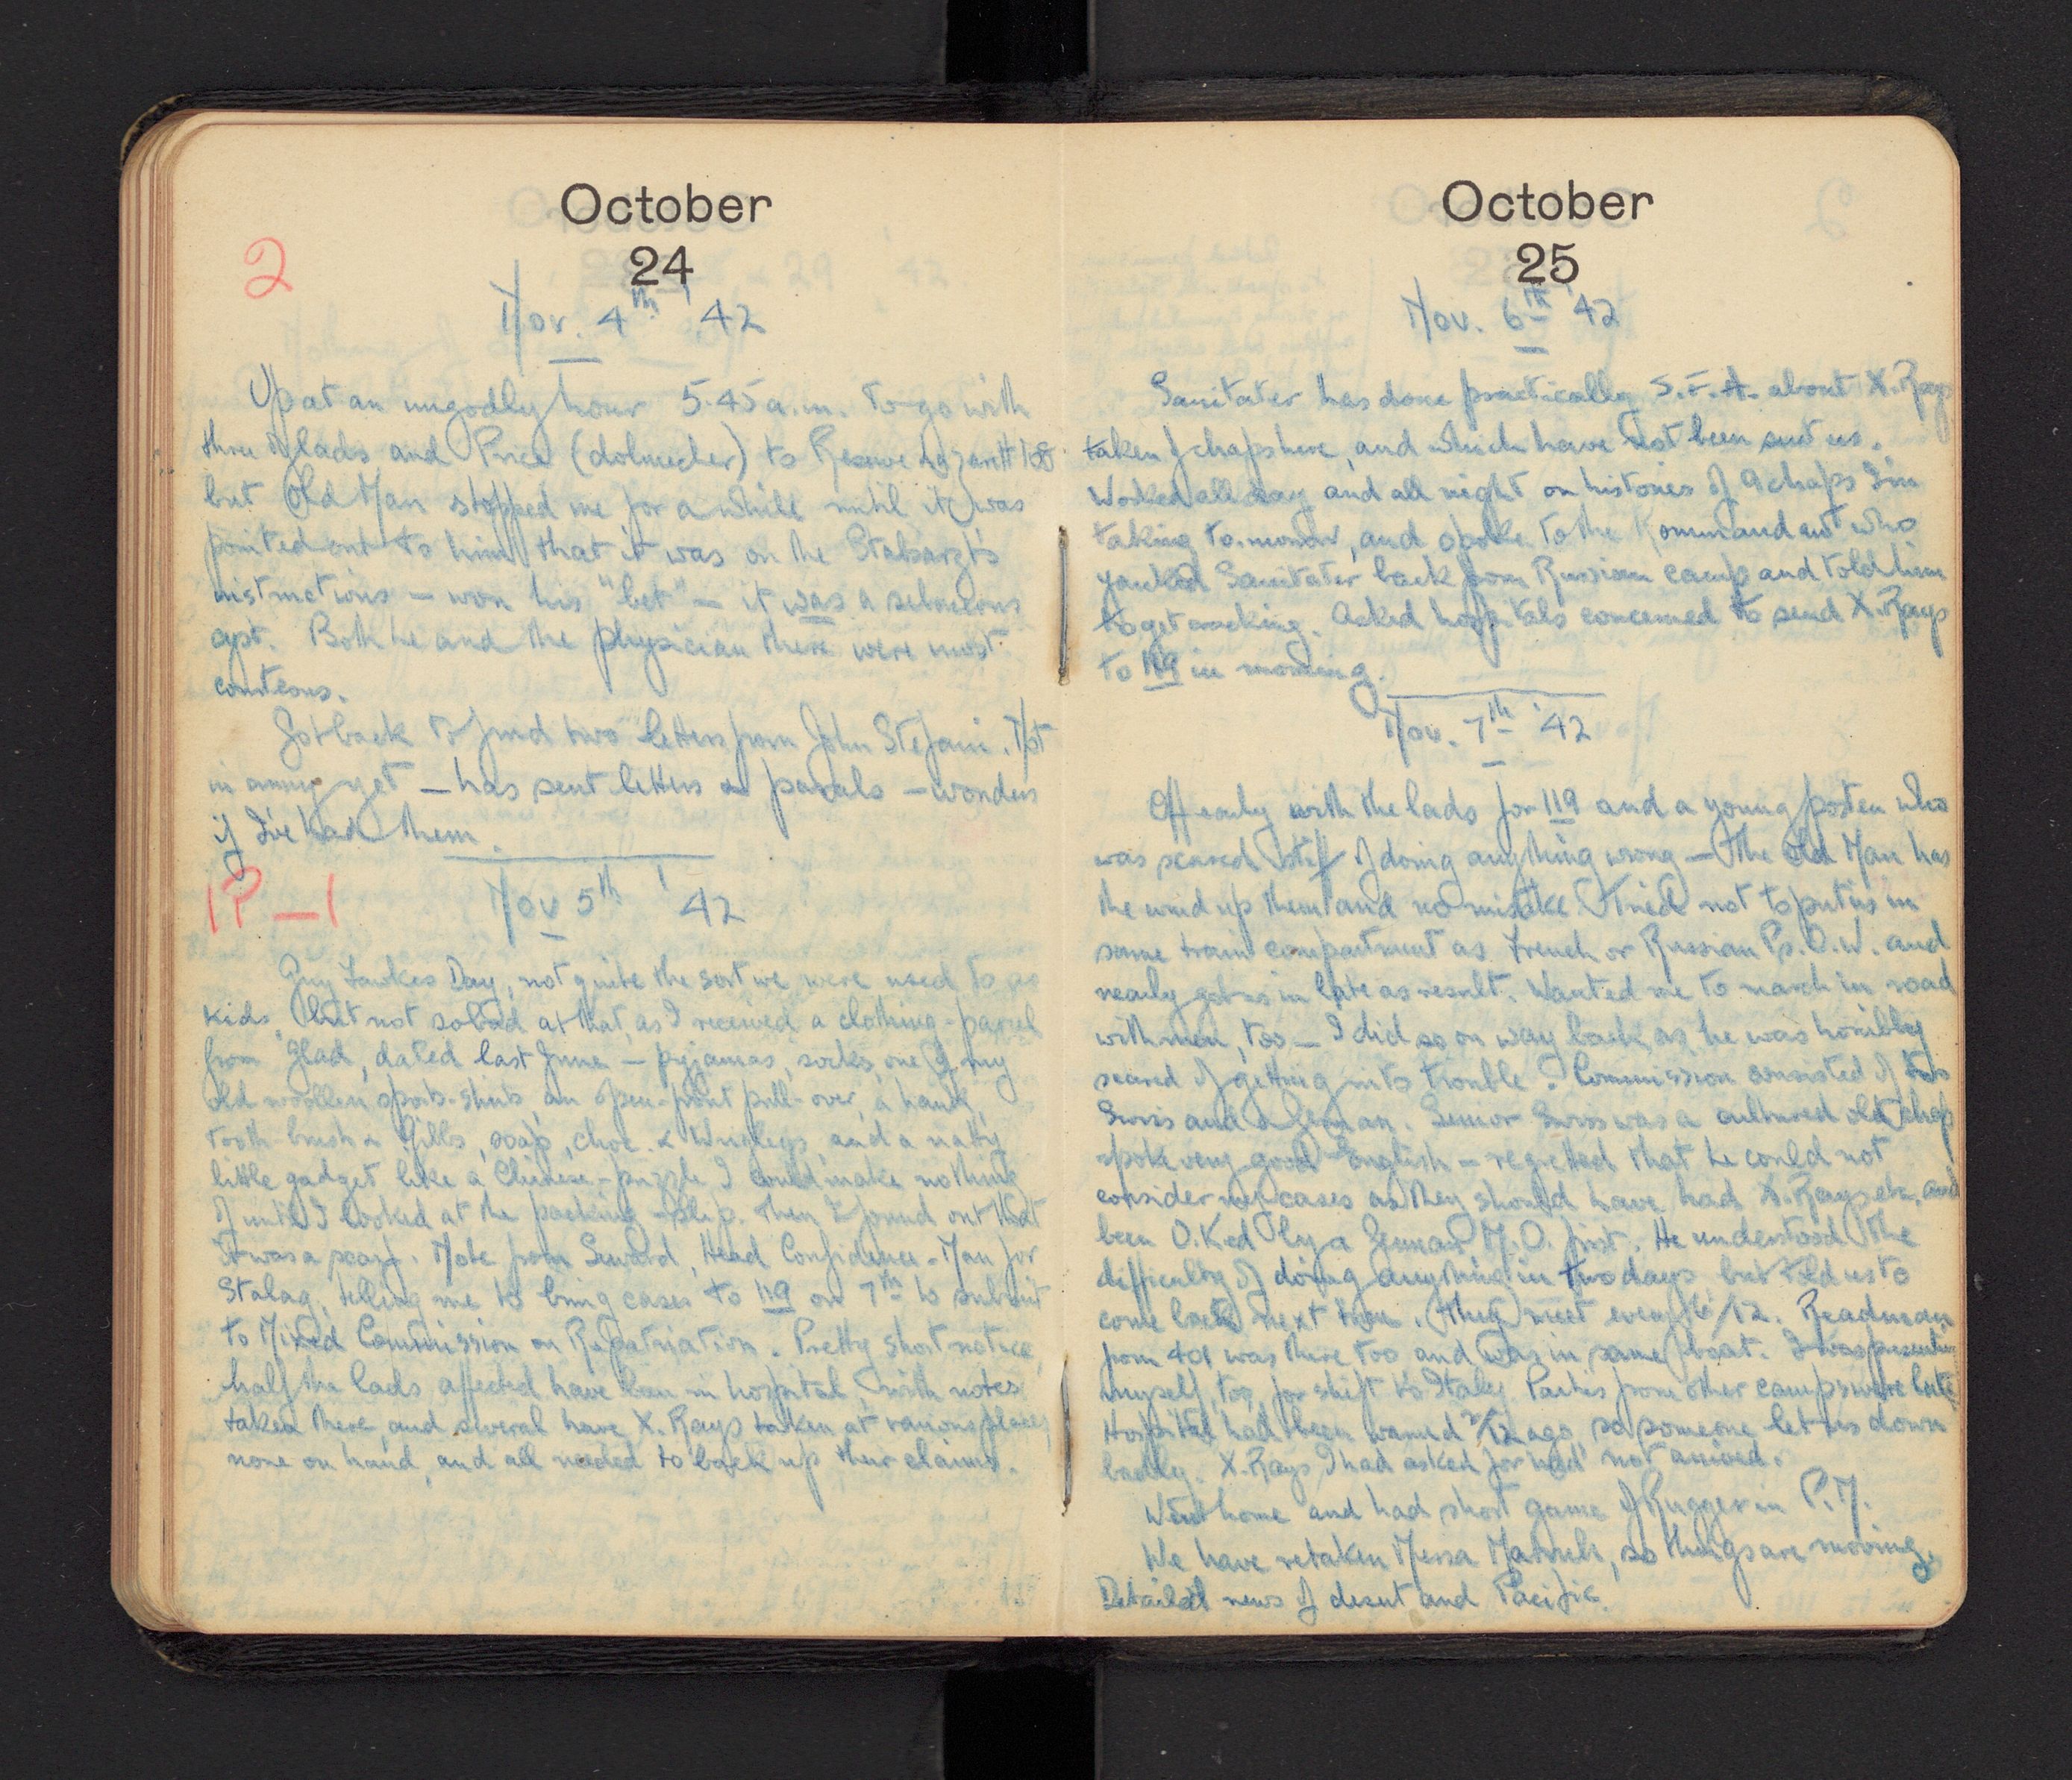 October
24
2
Nov. 4th '42
Up at an ungodly hour 5.45 a.m. to go with
three lads and Price (dolmecher) to Reserve Lazarett 108
but Old Man stopped me for a while until it was
pointed out to him that it was on the Stabarzt's
instructions — won his "bet" — it was a sebaceous
cyst. Both he and the physician there were most
courteous.
Got back to find two letters from John Stefani. Not
in army yet — has sent letters & parcels — wonders
if I've had them.
1P — 1
Nov 5th '42
Guy Fawkes Day, not quite the sort we were used to as
kids, but not so bad at that, as I received a clothing-parcel
from Glad, dated last June — pyjamas, socks, one of my
old woollen sports-shirts, an open-front pull-over, a hank,
tooth-brush & Gibbs, soap, choc. & Wrigleys, and a natty
little gadget like a Chinese-puzzle I could make nothing
of until I looked at the packing-slip. Then I found out that
it was a scarf. Note from Seward, Head Confidence-Man for
Stalag, telling me to bring cases to 119 on 7th to submit
to Mixed Commission on Repatriation. Pretty short notice,
half the lads affected have been in hospital, with notes
taken there and several have X.Rays taken at various places,
none on hand, and all needed to back up their claims.
October
25
Nov. 6th '42
Sanitater has done practically S.F.A. about X.Rays
taken of chaps here, and which have not been sent us.
Worked all day and all night on histories of 9 chaps I'm
taking to-morrow, and spoke to the Kommandant who
yanked Sanitater back from Russian camp and told him
to get cracking. Asked hospitals concerned to send X.Rays
to 119 in morning.
Nov. 7th '42
Off early with the lads for 119 and a young posten who
was scared stiff of doing anything wrong — the Old Man has
the wind up them and no mistake. Tried not to put us in
same train compartment as French or Russian Ps.O.W. and
nearly got us in late as result. Wanted me to march in road
with men, too — I did so on way back as he was horribly
scared of getting into trouble. Commission consisted of two
Swiss and a German. Senior Swiss was a cultured old chap
spoke very good English — regretted that he could not
consider my cases as they should have had X.Rays etc. and
been O.Ked by a German M.O. first. He understood the
difficulty of doing anything in two days, but told us to
come back next time. (They meet every 6/12. Readman
from 401 was there too and was in same boat. I was presenting
myself, too, for shift to Italy. Parties from other camps were late
Hospital had been warned 2/12 ago, so someone let us down
badly. X.Rays I had asked for had not arrived.
Went home and had short game of Rugger in P.M.
We have retaken Mersa Matruh, so things are moving.
Detailed news of desert and Pacific.